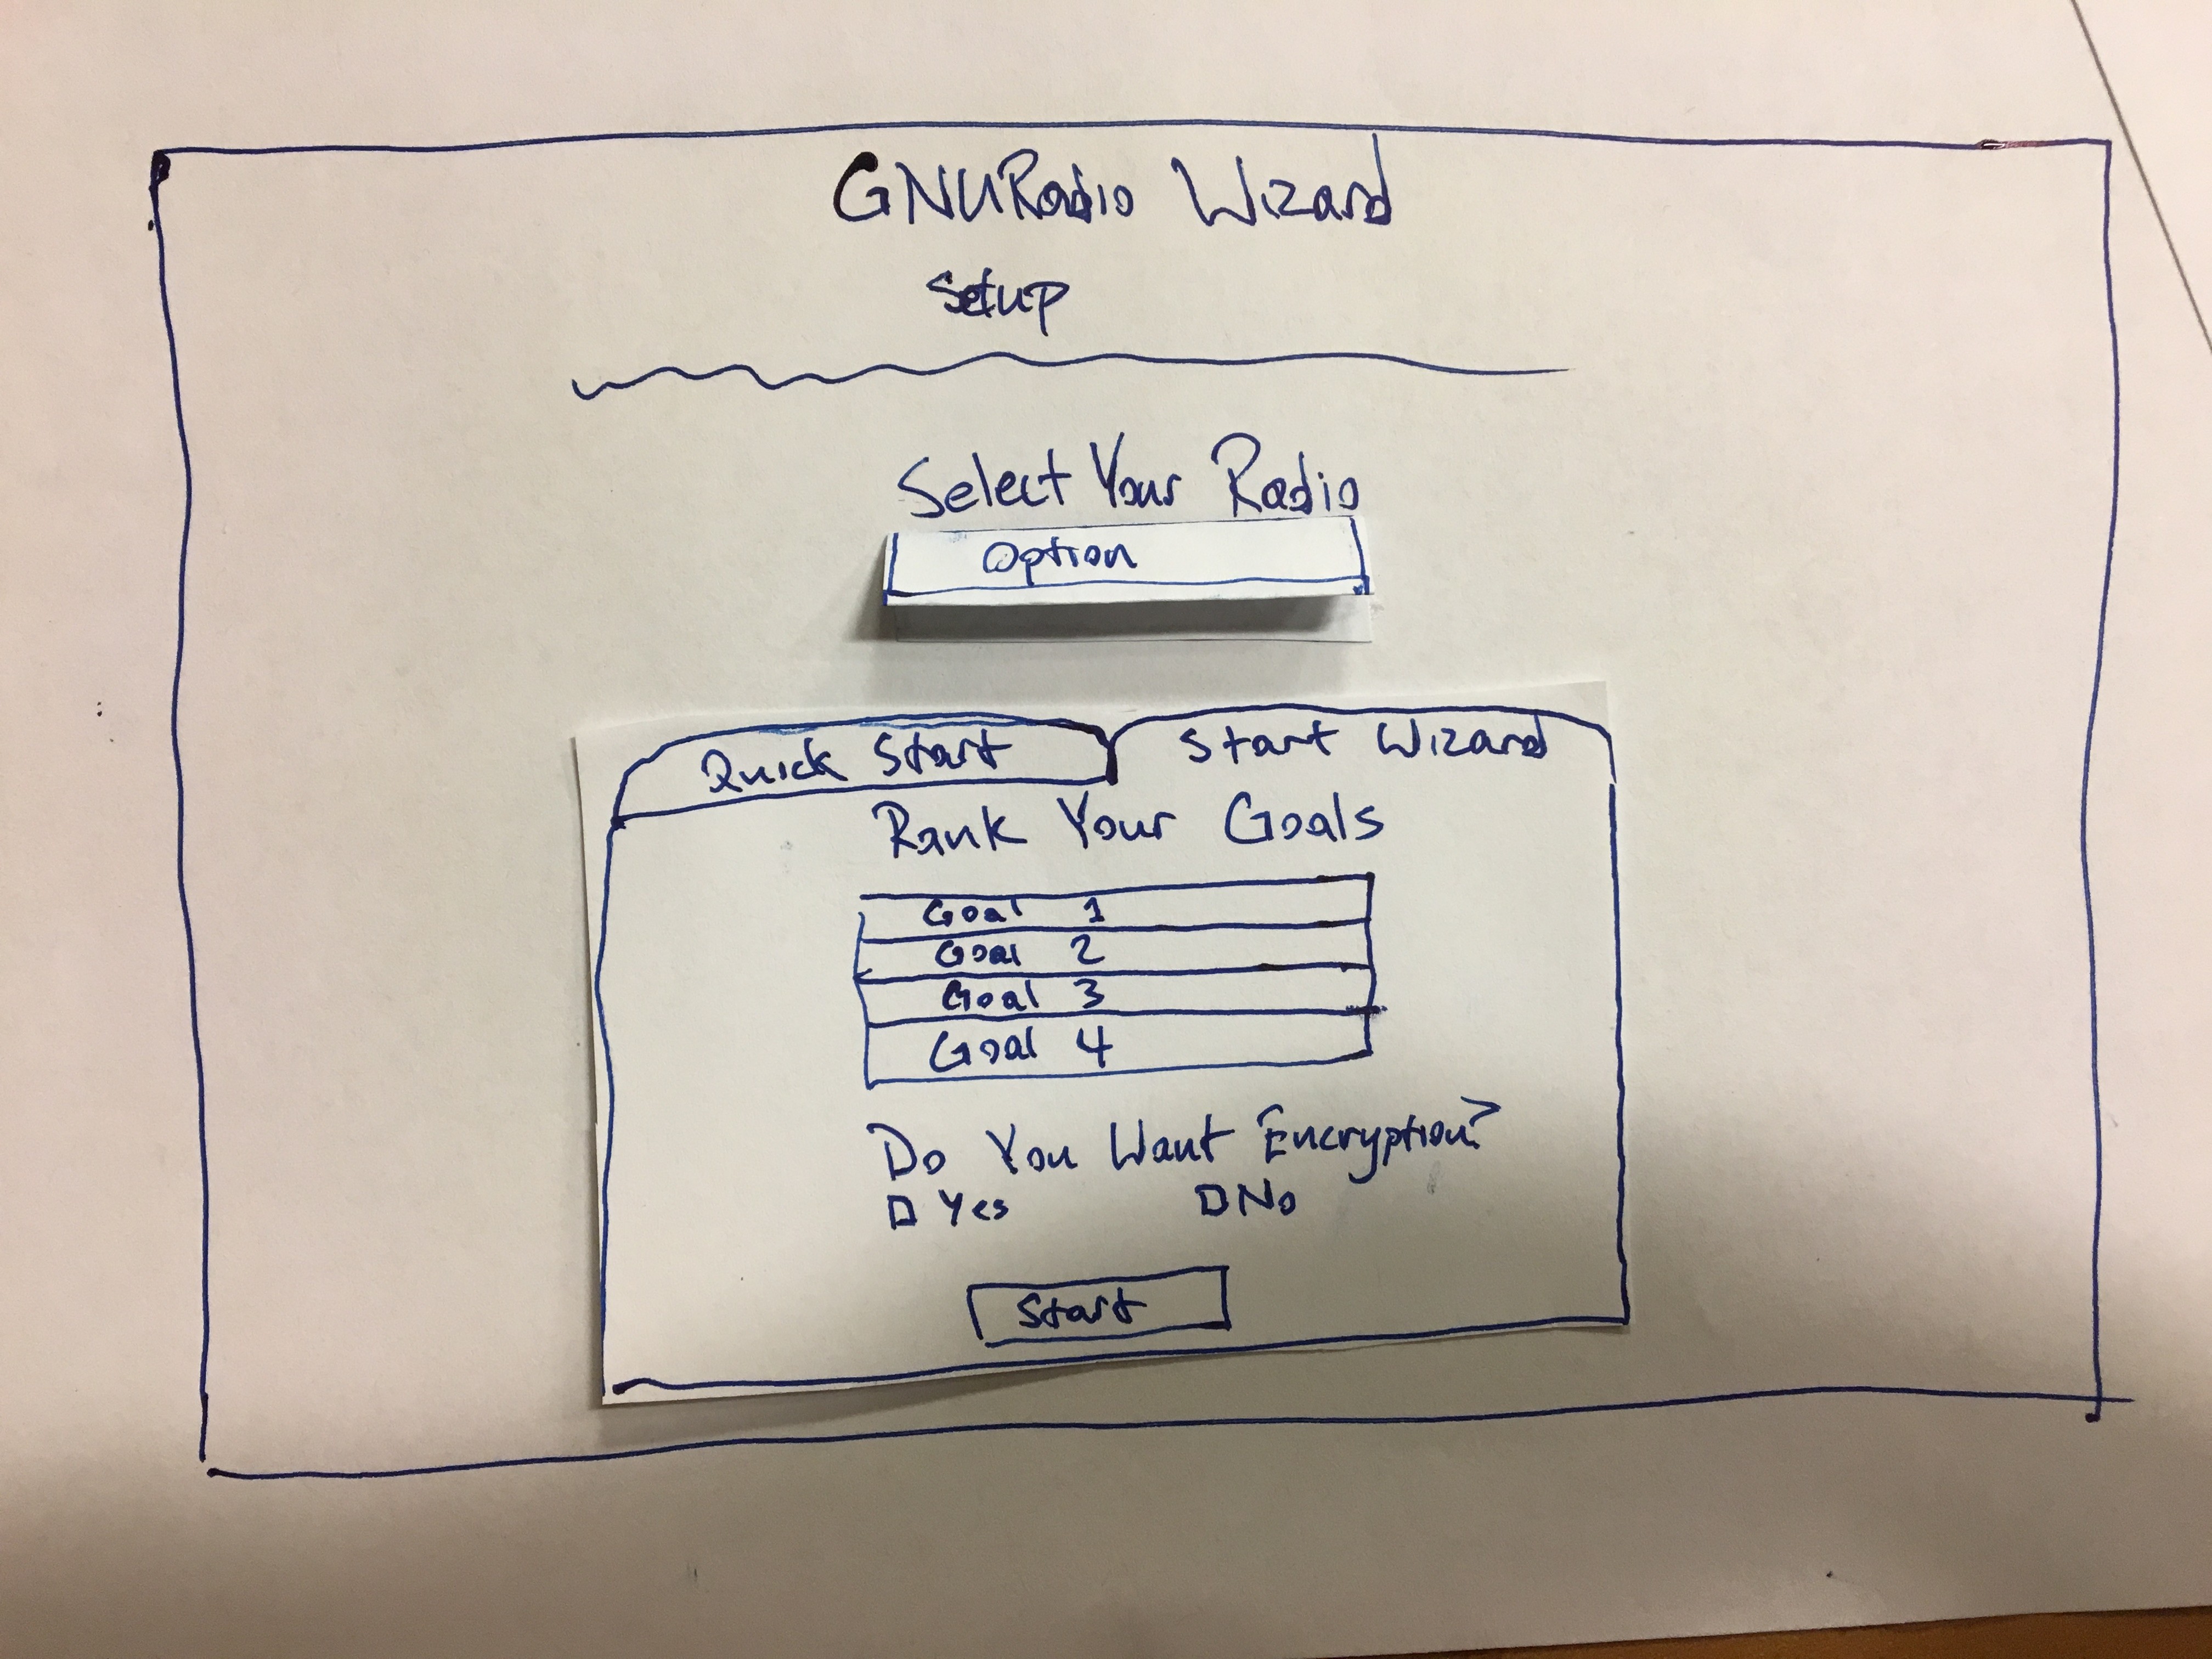 GNURadio Wizard
Setup
Select Your Radio
Option
Quick Start
Start Wizard
Rank Your Goals
Goal 1
Goal 2
Goal 3
Goal 4
Do You Want Encryption?
Yes No
Start